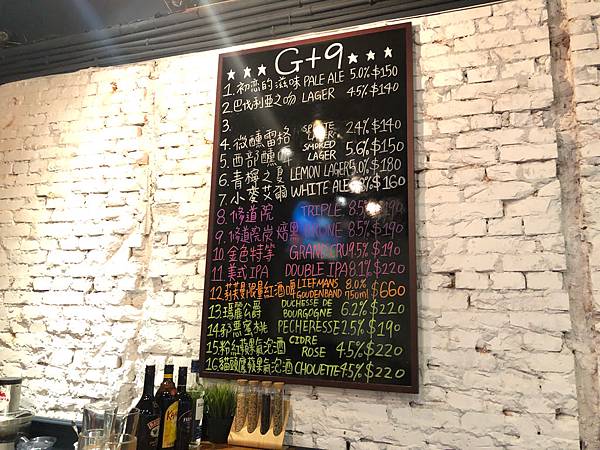 ★★★ G+9 ★★★
1. 初戀的滋味 PALE ALE 5.0% $150
2. 巴伐利亞之吻 LAGER 4.5% $140
3.
4. 微醺雷格 LAGER 2.4% $140
5. 西部醺啤 SMOKED LAGER 5.6% $150
6. 青檸之夏 LEMON LAGER 5.0% $180
7. 小麥艾爾 WHITE ALE $160
8. 修道院 TRIPLE 8.5% $190
9. 修道院炭焙黑 8.5% $190
10. 金色特等 GRAND CRU 9.5% $190
11. 美式IPA DOUBLE IPA 8.1% $220
12. 限量紅酒 LIEFMANS GOUDENBAND 8.0% 750ml $660
13. 瑪麗公爵 DUCHESSE DE BOURGOGNE 6.2% $220
14. 邪惡蜜桃 PECHERESSE 2.5% $190
15. 粉紅蘋果氣泡酒 CIDRE ROSE 4.5% $220
16. 貓頭鷹蘋果氣泡酒 CHOUETTE 4.5% $220